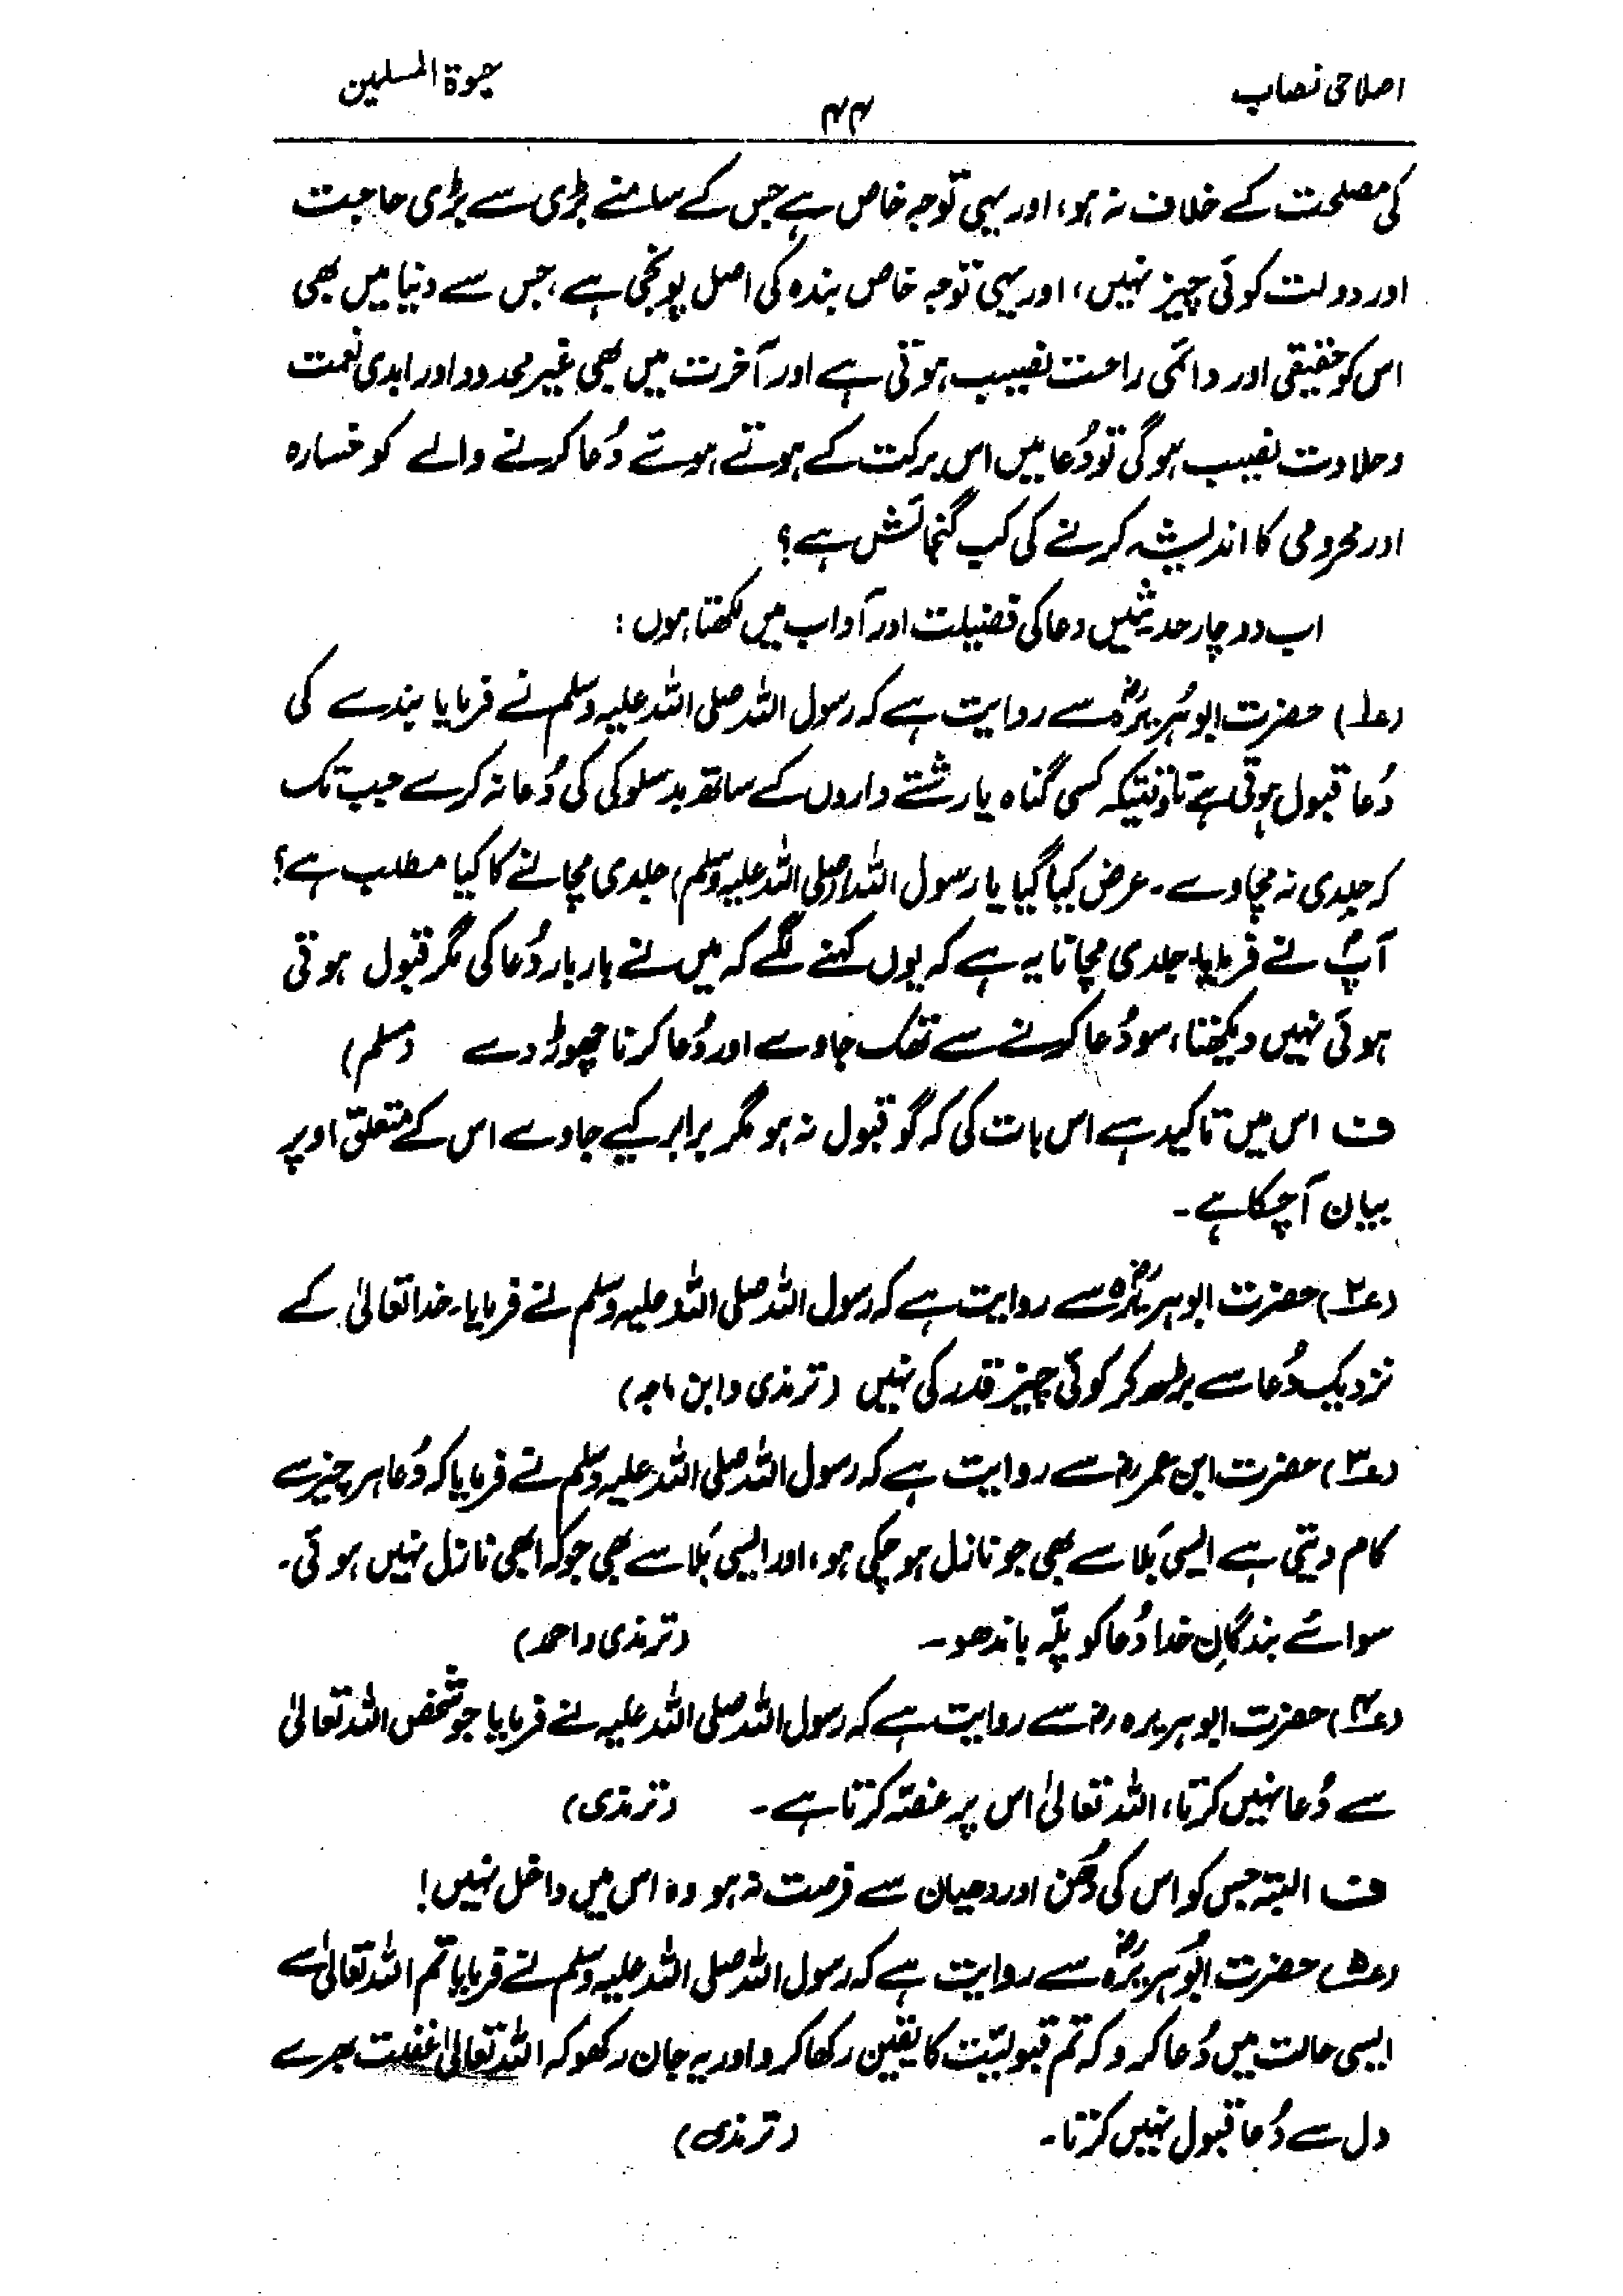 اصلاحی نصاب
۴۴
حیوۃ المسلمین
کی مصلحت کے خلاف نہ ہو، اور یہی توجہ خاص ہے جس کے سامنے بڑی سے بڑی حاجت
اور دولت کوئی چیز نہیں، اور یہی توجہ خاص بندہ کی اصل پونجی ہے، جس سے دنیا میں بھی
اس کو حقیقی اور دائمی راحت نصیب ہوتی ہے اور آخرت میں بھی غیر محدود اور ابدی نعمت
وحلاوت نصیب ہوگی تو دُعا میں اس برکت کے ہوتے ہوئے دُعا کرنے والے کو خسارہ
اور محرومی کا اندیشہ کرنے کی کب گنجائش ہے؟
اب دو چار حدیثیں دعا کی فضیلت اور آداب میں لکھتا ہوں:
(ع۱) حضرت ابو ہُریرہؓ سے روایت ہے کہ رسول اللہ صلی اللہ علیہ وسلم نے فرمایا بندے کی
دُعا قبول ہوتی ہے تاوقتیکہ کسی گناہ یا رشتے داروں کے ساتھ بدسلوکی کی دُعا نہ کرے جب تک
کہ جلدی نہ مچاوے۔ عرض کیا گیا یا رسول اللہ (صلی اللہ علیہ وسلم) جلدی مچانے کا کیا مطلب ہے؟
آپؐ نے فرمایا۔ جلدی مچانا یہ ہے کہ یوں کہنے لگے کہ میں نے بار بار دُعا کی مگر قبول ہوتی
ہوئی نہیں دیکھتا، سو دُعا کرنے سے تھک جاوے اور دُعا کرنا چھوڑ دے (مسلم)
ف اس میں تاکید ہے اس بات کی کہ گو قبول نہ ہو مگر برابر کیے جاوے اس کے متعلق اوپر
بیان آچکا ہے۔
(ع۲) حضرت ابو ہریرہؓ سے روایت ہے کہ رسول اللہ صلی اللہ علیہ وسلم نے فرمایا۔ خدا تعالیٰ کے
نزدیک دُعا سے بڑھ کر کوئی چیز قدر کی نہیں (ترمذی و ابن ماجہ)
(ع۳) حضرت ابن عمر رض سے روایت ہے کہ رسول اللہ صلی اللہ علیہ وسلم نے فرمایا کہ دُعا ہر چیز سے
کام دیتی ہے ایسی بَلا سے بھی جو نازل ہو چکی ہو، اور ایسی بَلا سے بھی جو کہ ابھی نازل نہیں ہوئی۔
سو ائے بندگانِ خدا دُعا کو پلّہ باندھو۔ (ترمذی و احمد)
(ع۴) حضرت ابو ہریرہ رض سے روایت ہے کہ رسول اللہ صلی اللہ علیہ نے فرمایا جو شخص اللہ تعالیٰ
سے دُعا نہیں کرتا، اللہ تعالیٰ اس پر غصّہ کرتا ہے۔ (ترمذی)
ف البتہ جس کو اس کی دُھن اور دھیان سے فرصت نہ ہو وہ اس میں داخل نہیں!
(ع۵) حضرت ابُو ہُریرہؓ سے روایت ہے کہ رسول اللہ صلی اللہ علیہ وسلم نے فرمایا تم اللہ تعالیٰ سے
ایسی حالت میں دُعا کرو کہ تم قبولیّت کا یقین رکھا کرو اور یہ جان رکھو کہ اللہ تعالیٰ غفلت بھرے
دل سے دُعا قبول نہیں کرتا۔ (ترمذی)